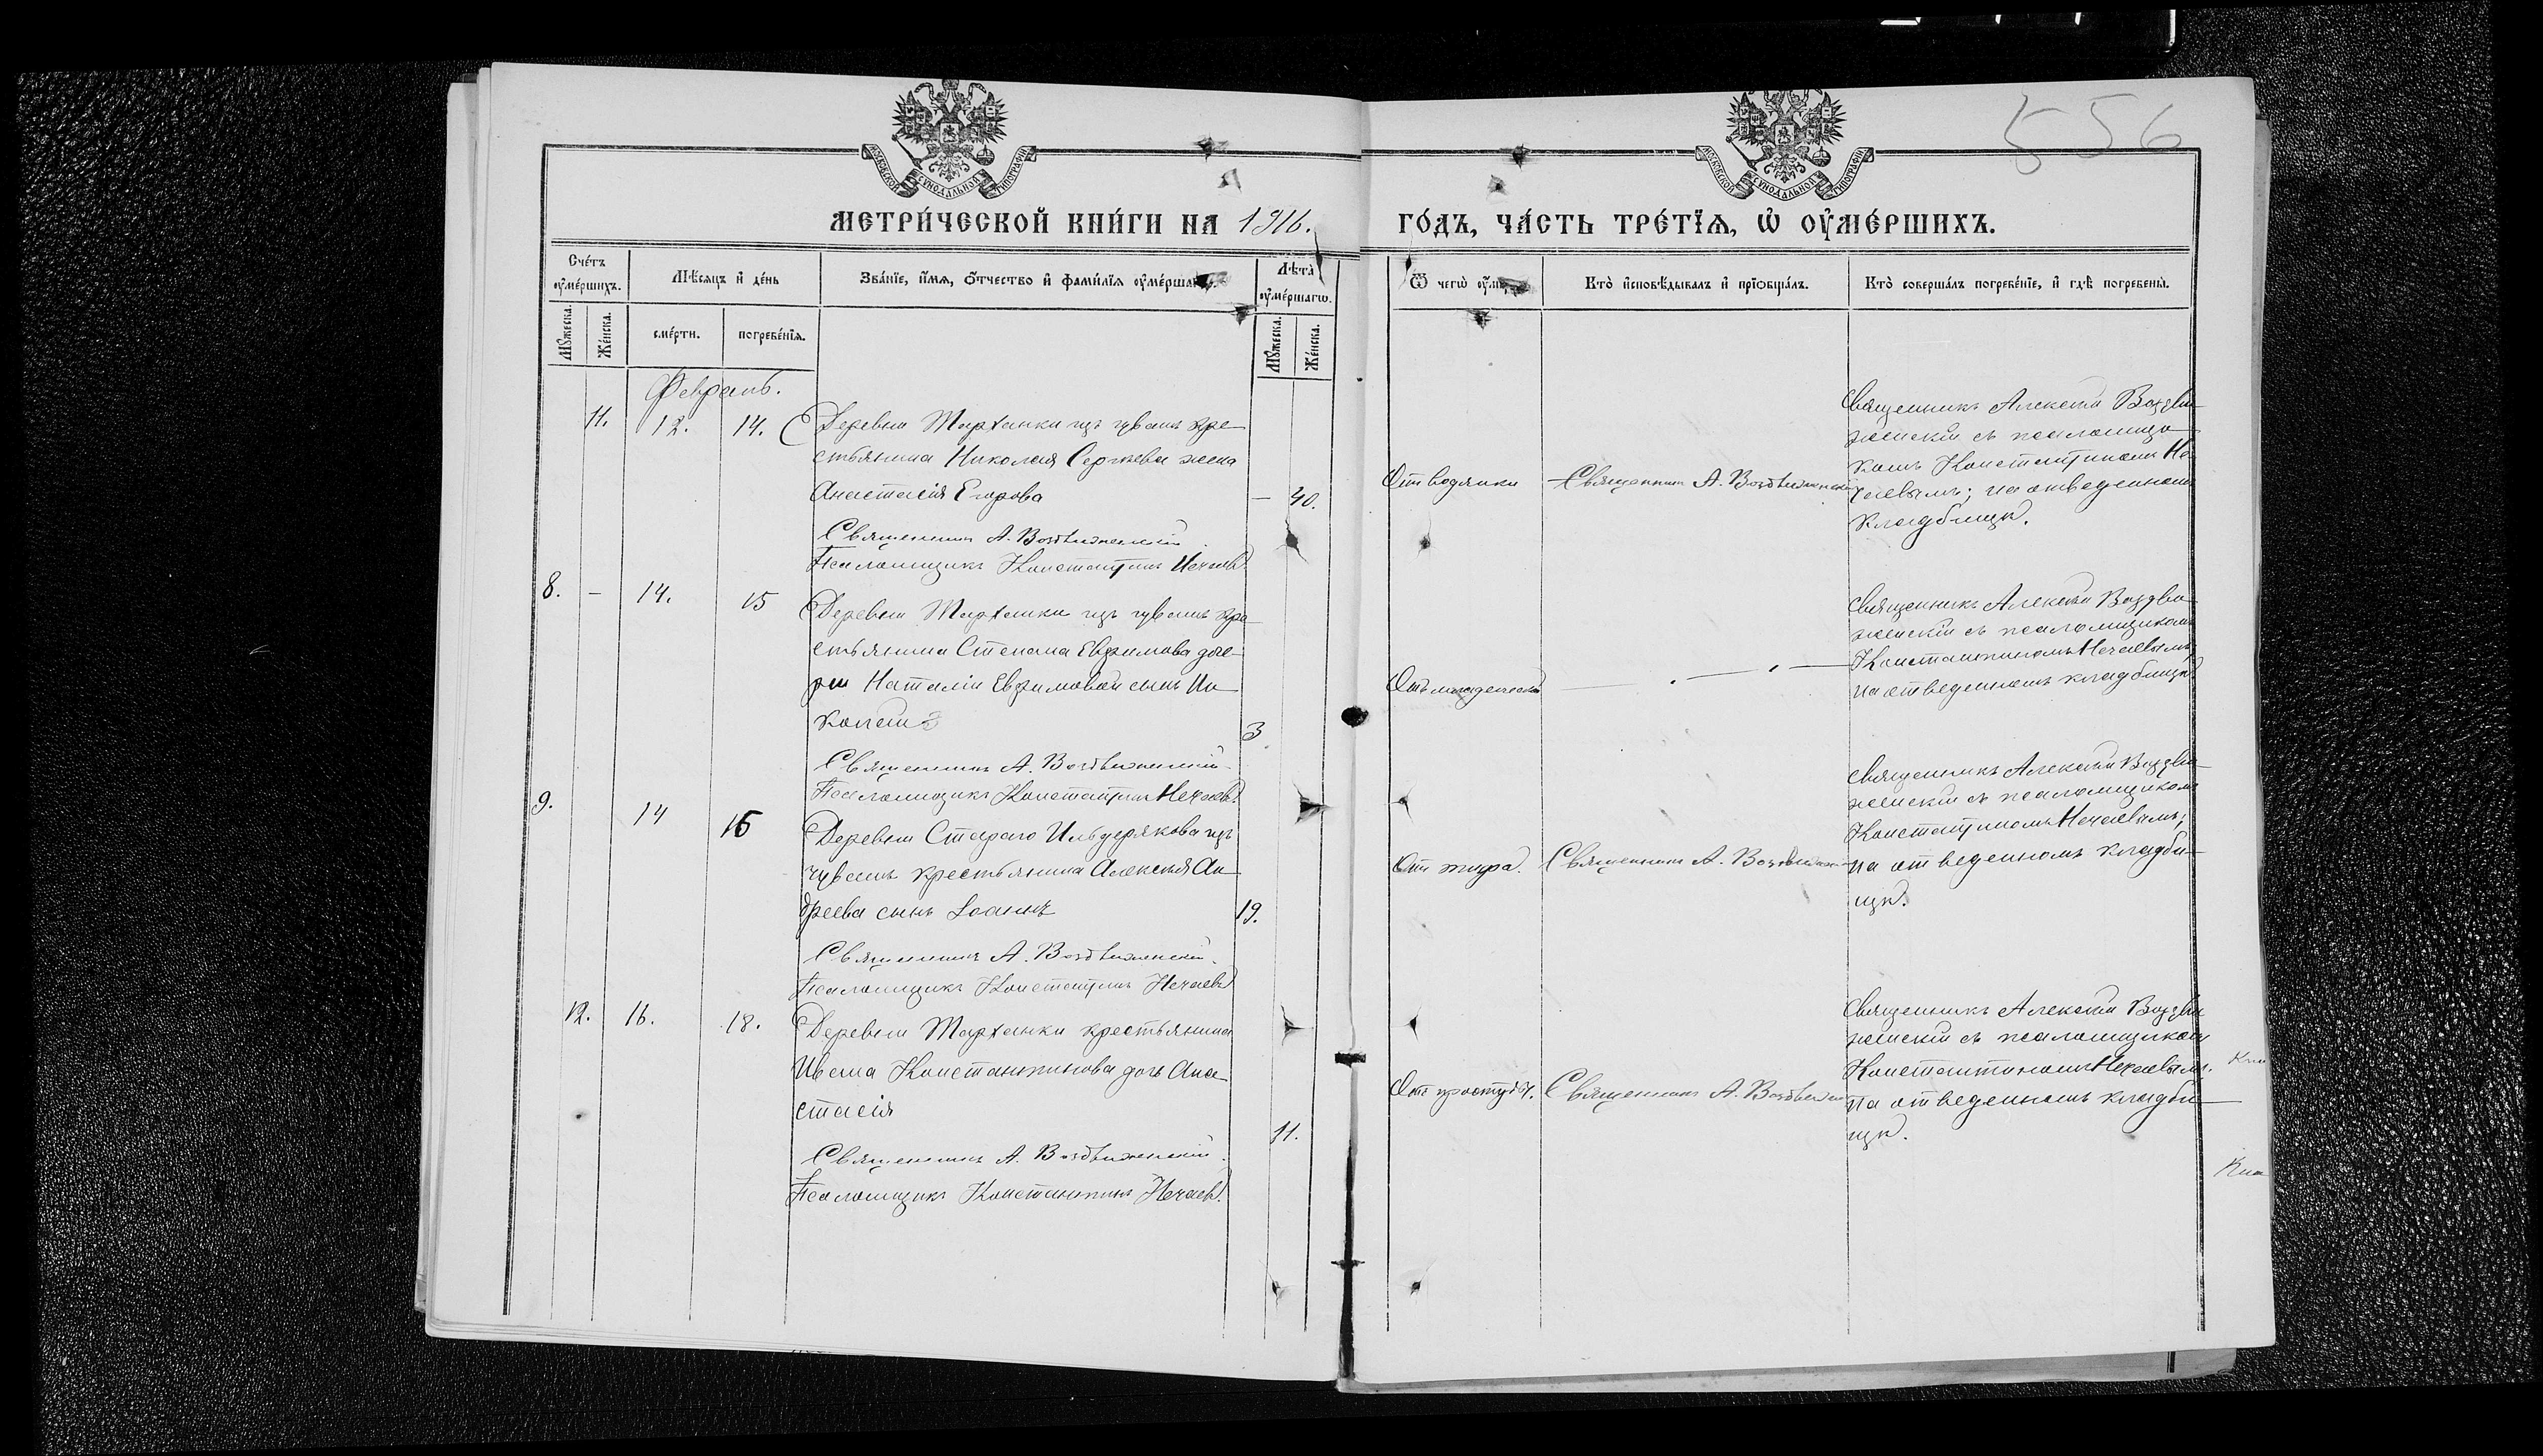 МОСКОВСКОЙ СѴНОДАЛЬНОЙ ТИПОГРАФІИ
МОСКОВСКОЙ СѴНОДАЛЬНОЙ ТИПОГРАФІИ
556
МЕТРИ́ЧЕСКОЙ КНИ́ГИ НА 1916.
ГО́ДЪ, ЧА́СТЬ ТРЕ́ТЇѦ, Ѡ ОУ҆МЕ́РШИХЪ.
Сче́тъ оу҆ме́ршихъ.
Мѣ́сяцъ и҆ де́нь
Зва́нїе, и҆́мѧ, ѻ҆́тчество и҆ фами́лїѧ оу҆ме́ршагѡ.
Лѣ́та оу҆ме́ршагѡ.
Ѿ чегѡ̀ оу҆́меръ
Кто̀ и҆сповѣ́дывалъ и҆ прїѡбща́лъ.
Кто̀ соверша́лъ погребе́нїе, и҆ гдѣ̀ погребены̀.
Мꙋ́жеска.
Же́нска.
сме́рти.
погребе́нїѧ.
Мꙋ́жеска.
Же́нска.
Февраль.
11. 12. 14. Деревни Тарханки изъ чувашъ кре-
стьянина Николая Сергѣева жена
Анастасія Егорова — 40.
Священникъ А. Воздвиженскій.
Псаломщикъ Константинъ Нечаевъ.
Отъ водянки
Священникъ А. Воздвиженскій
Священникъ Алексѣй Воздви-
женскій съ псаломщи-
комъ Константиномъ Не-
чаевымъ; на отведенномъ
кладбищѣ.
8. – 14. 15 Деревни Тарханки изъ чувашъ кре-
стьянина Степана Евфимова доче-
ри Наталіи Евфимовой сынъ Ни-
колай 3
Священникъ А. Воздвиженскій
Псаломщикъ Константинъ Нечаевъ.
Отъ младенческой
Священникъ Алексѣй Воздви-
женскій съ псаломщикомъ
Константиномъ Нечаевымъ
на отведенномъ кладбищѣ.
9. 14 16 Деревни Стараго Ильдерякова изъ
чувашъ крестьянина Алексѣя Ан-
дреева сынъ Іоаннъ 19.
Священникъ А. Воздвиженскій.
Псаломщикъ Константинъ Нечаевъ
Отъ тифа.
Священникъ А. Воздвиженскій
Священникъ Алексѣй Воздви-
женскій съ псаломщикомъ
Константиномъ Нечаевымъ;
на отведенномъ кладби-
щѣ.
12. 16. 18. Деревни Тарханки крестьянина
Ивана Константинова дочь Ана-
стасія 11.
Священникъ А. Воздвиженскій.
Псаломщикъ Константинъ Нечаевъ.
Отъ простуды.
Священникъ А. Воздвиженскій
Священникъ Алексѣй Воздви-
женскій съ псаломщикомъ
Константиномъ Нечаевымъ.
на отведенномъ кладби-
щѣ.